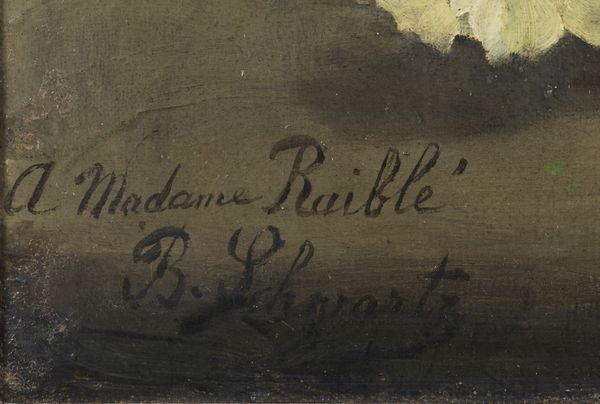 A Madame Raiblé
B. Schwartz